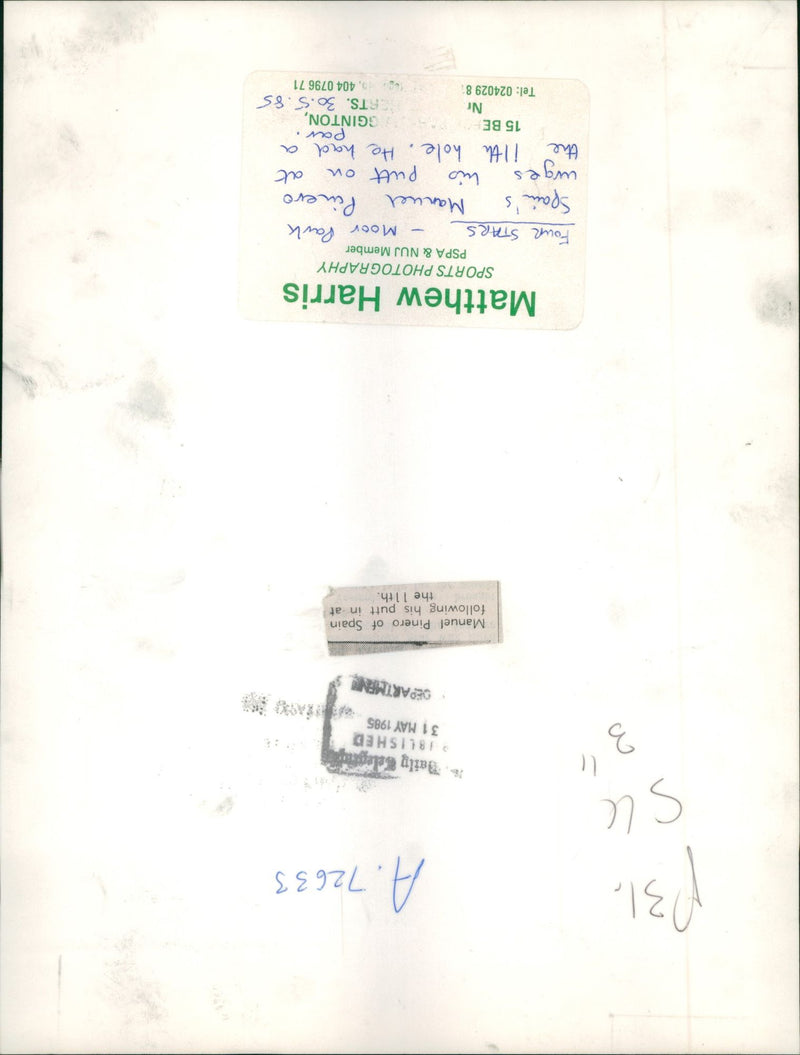 p31.
A.72633
3"
Daily Telegraph
PUBLISHED
31 MAY 1985
DEPARTMENT
Manuel Pinero of Spain
following his putt in at
the 11th.
Matthew Harris
SPORTS PHOTOGRAPHY
PSPA & NUJ Member
FOUR STARS – Moor Park
Spain's Manuel Pinero
urges his putt on at
the 11th hole. He had a
par.
15
Nr HERTS. 30.5.85
Tel: 024029 404 0796 71